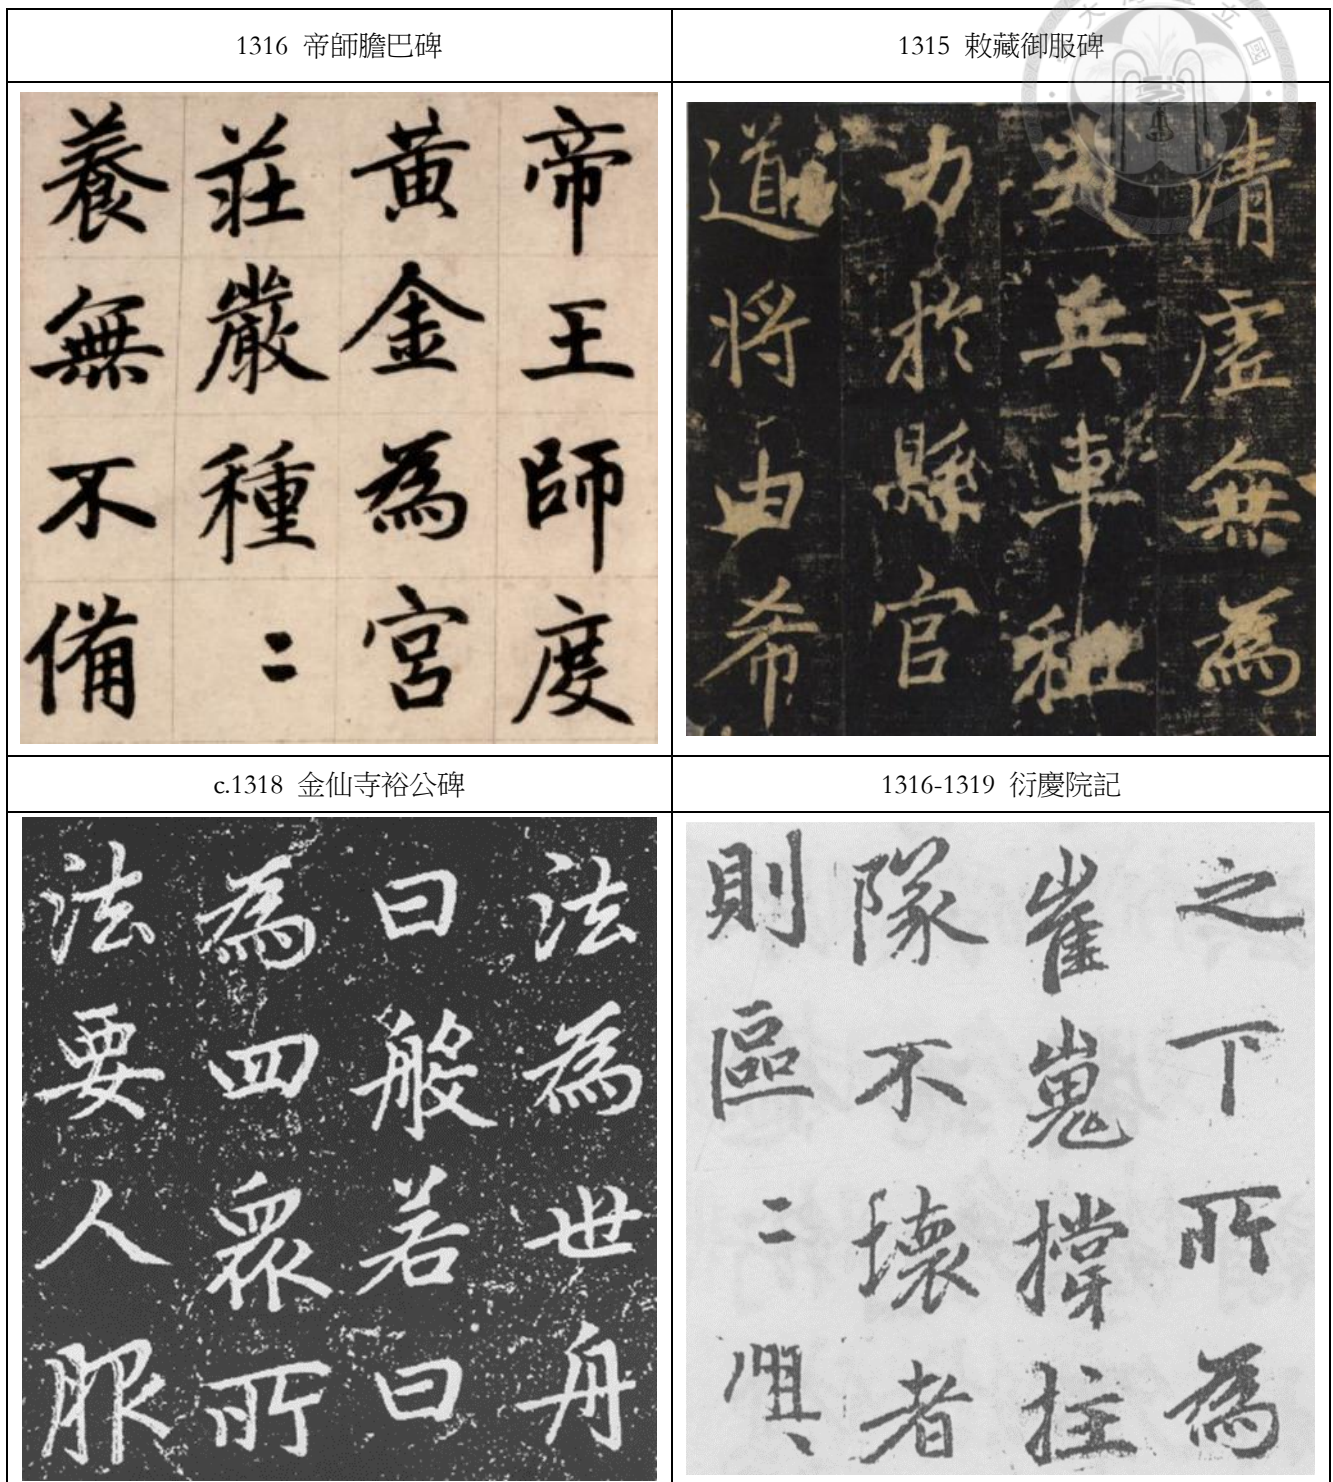 1316 帝師膽巴碑
1315 敕藏御服碑
帝王師度
黃金為宮
莊嚴種〻
養無不備
清虛無為
兵車租
力於縣官
道將由希
c.1318 金仙寺裕公碑
1316-1319 衍慶院記
法為世舟
曰般若曰
為四眾所
法要人服
之下所為
崔嵬撐拄
隊不壞者
則區〻